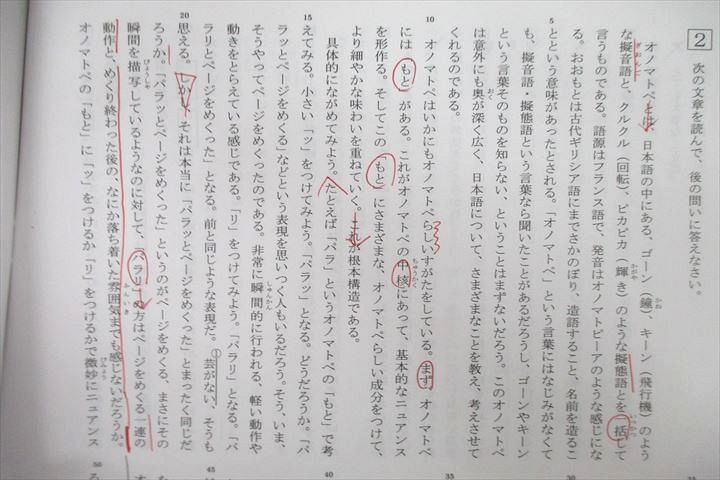 2 次の文章を読んで、後の問いに答えなさい。
オノマトペとは、日本語の中にある、ゴーン（鐘）、キーン（飛行機）のよう
な擬音語と、クルクル（回転）、ピカピカ（輝き）のような擬態語とを一括して
言うものである。語源はフランス語で、発音はオノマトピーアのような感じにな
る。おおもとは古代ギリシア語にまでさかのぼり、造語すること、名前を造るこ
5 とという意味があったとされる。「オノマトペ」という言葉にはなじみがなくて
も、擬音語・擬態語という言葉なら聞いたことがあるだろうし、ゴーンやキーン
という言葉そのものを知らない、ということはまずないだろう。このオノマトペ
は意外にも奥が深く広く、日本語について、さまざまなことを教え、考えさせて
くれるのである。
10 オノマトペはいかにもオノマトペらしいすがたをしている。まず、オノマトペ
には「もと」がある。これがオノマトペの中核にあって、基本的なニュアンス
を形作る。そしてこの「もと」にさまざまな、オノマトペらしい成分をつけて、
より細やかな味わいを重ねていく。これが根本構造である。
具体的にながめてみよう。たとえば「パラ」というオノマトペの「もと」で考
15 えてみる。小さい「ッ」をつけてみよう。「パラッ」となる。どうだろうか。「パ
ラッとページをめくる」などという表現を思いつく人もいるだろう。そう、いま、
そうやってページをめくったのである。非常に瞬間的に行われる、軽い動作や
動きをとらえている感じである。「リ」をつけてみよう。「パラリ」となる。「パ
ラリとページをめくった」となる。前と同じような表現だ。①芸がない、そうも
20 思える。しかし、それは本当に「パラッとページをめくった」とまったく同じだ
ろうか。「パラッとページをめくった」というのがページをめくる、まさにその
瞬間を描写しているようなのに対して、「パラリ」の方はページをめくる一連の
動作と、めくり終わった後の、なにか落ち着いた雰囲気までも感じないだろうか。
オノマトペの「もと」に「ッ」をつけるか「リ」をつけるかで微妙にニュアンス
35
40
45
50